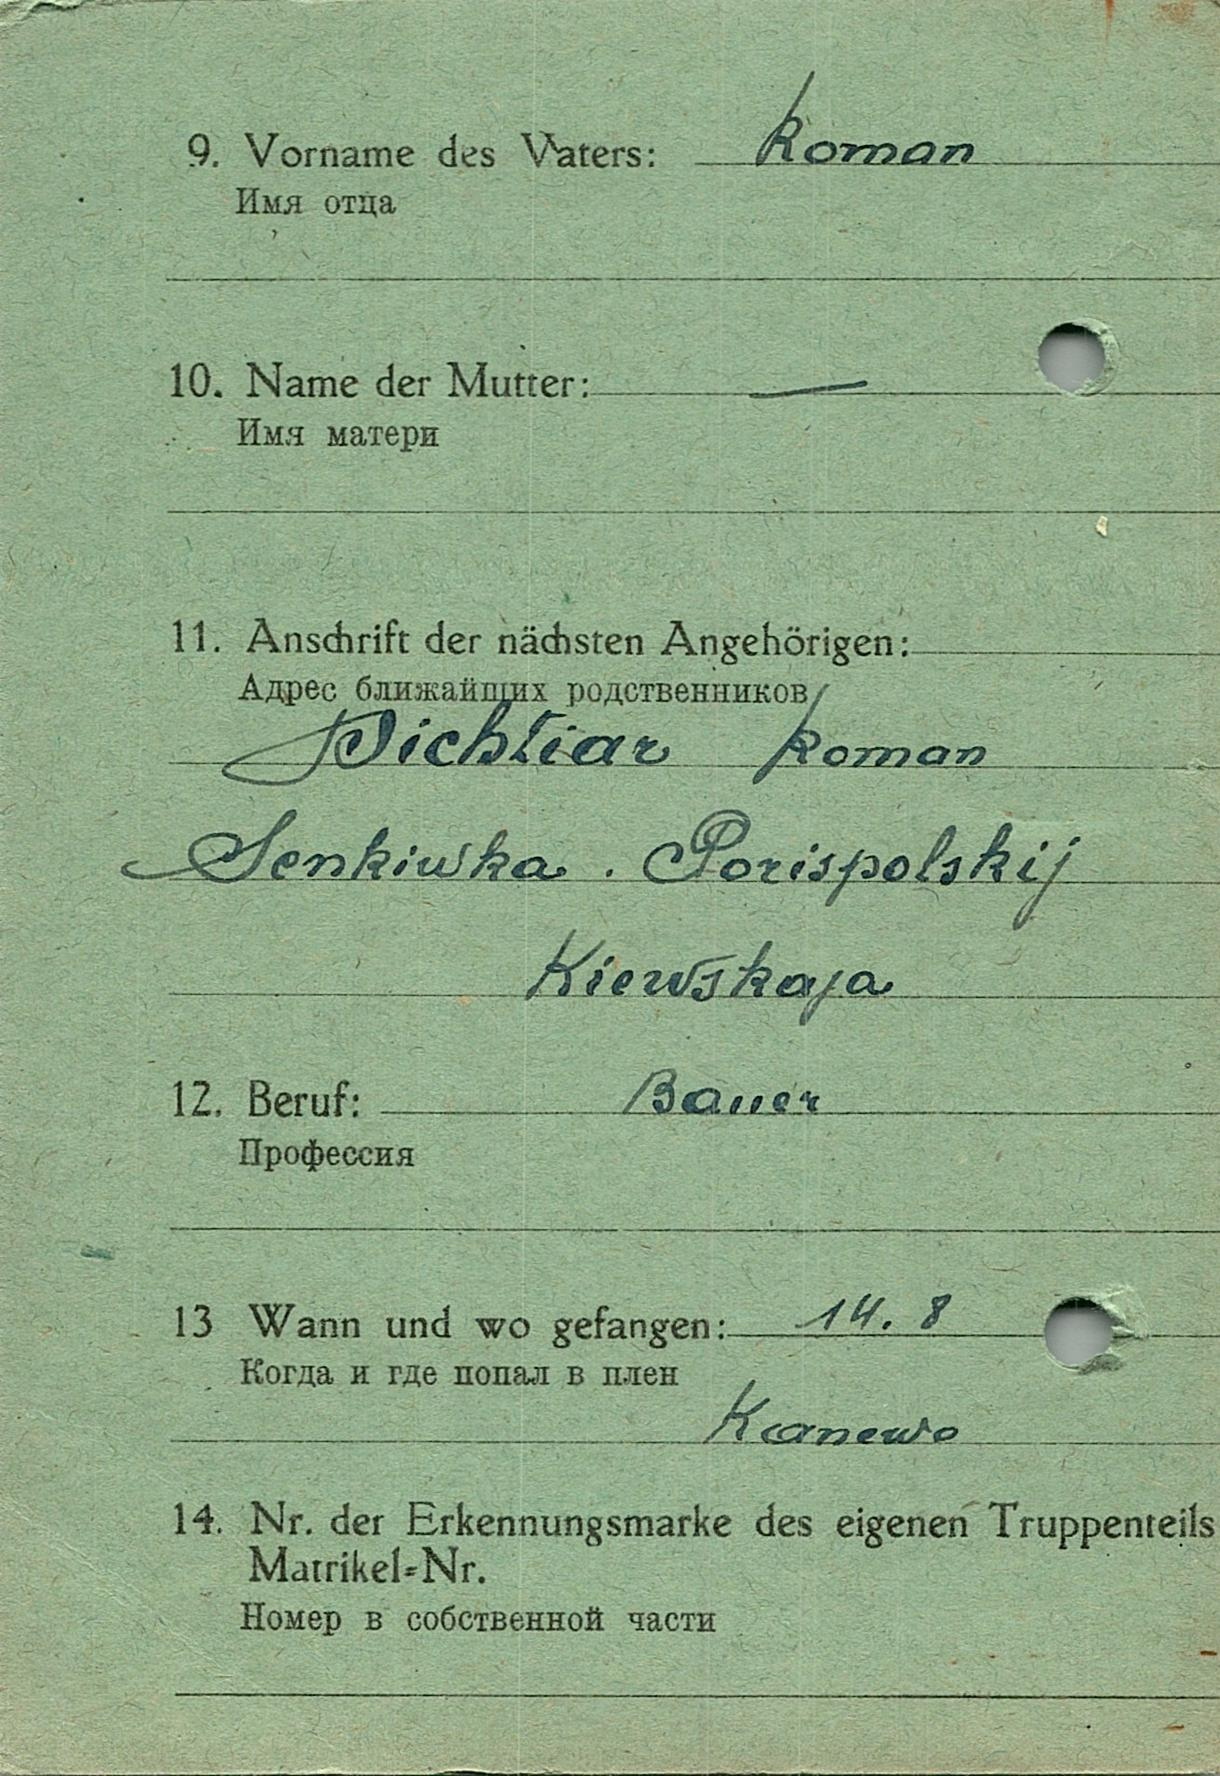 9. Vorname des Vaters: Roman
Имя отца
10. Name der Mutter: —
Имя матери
11. Anschrift der nächsten Angehörigen:
Адрес ближайших родственников
Dichtiar Roman
Senkiwka. Porispolskij
Kiewskaja
12. Beruf: Bauer
Профессия
13 Wann und wo gefangen: 14. 8
Когда и где попал в плен
Kanewo
14. Nr. der Erkennungsmarke des eigenen Truppenteils
Matrikel-Nr.
Номер в собственной части